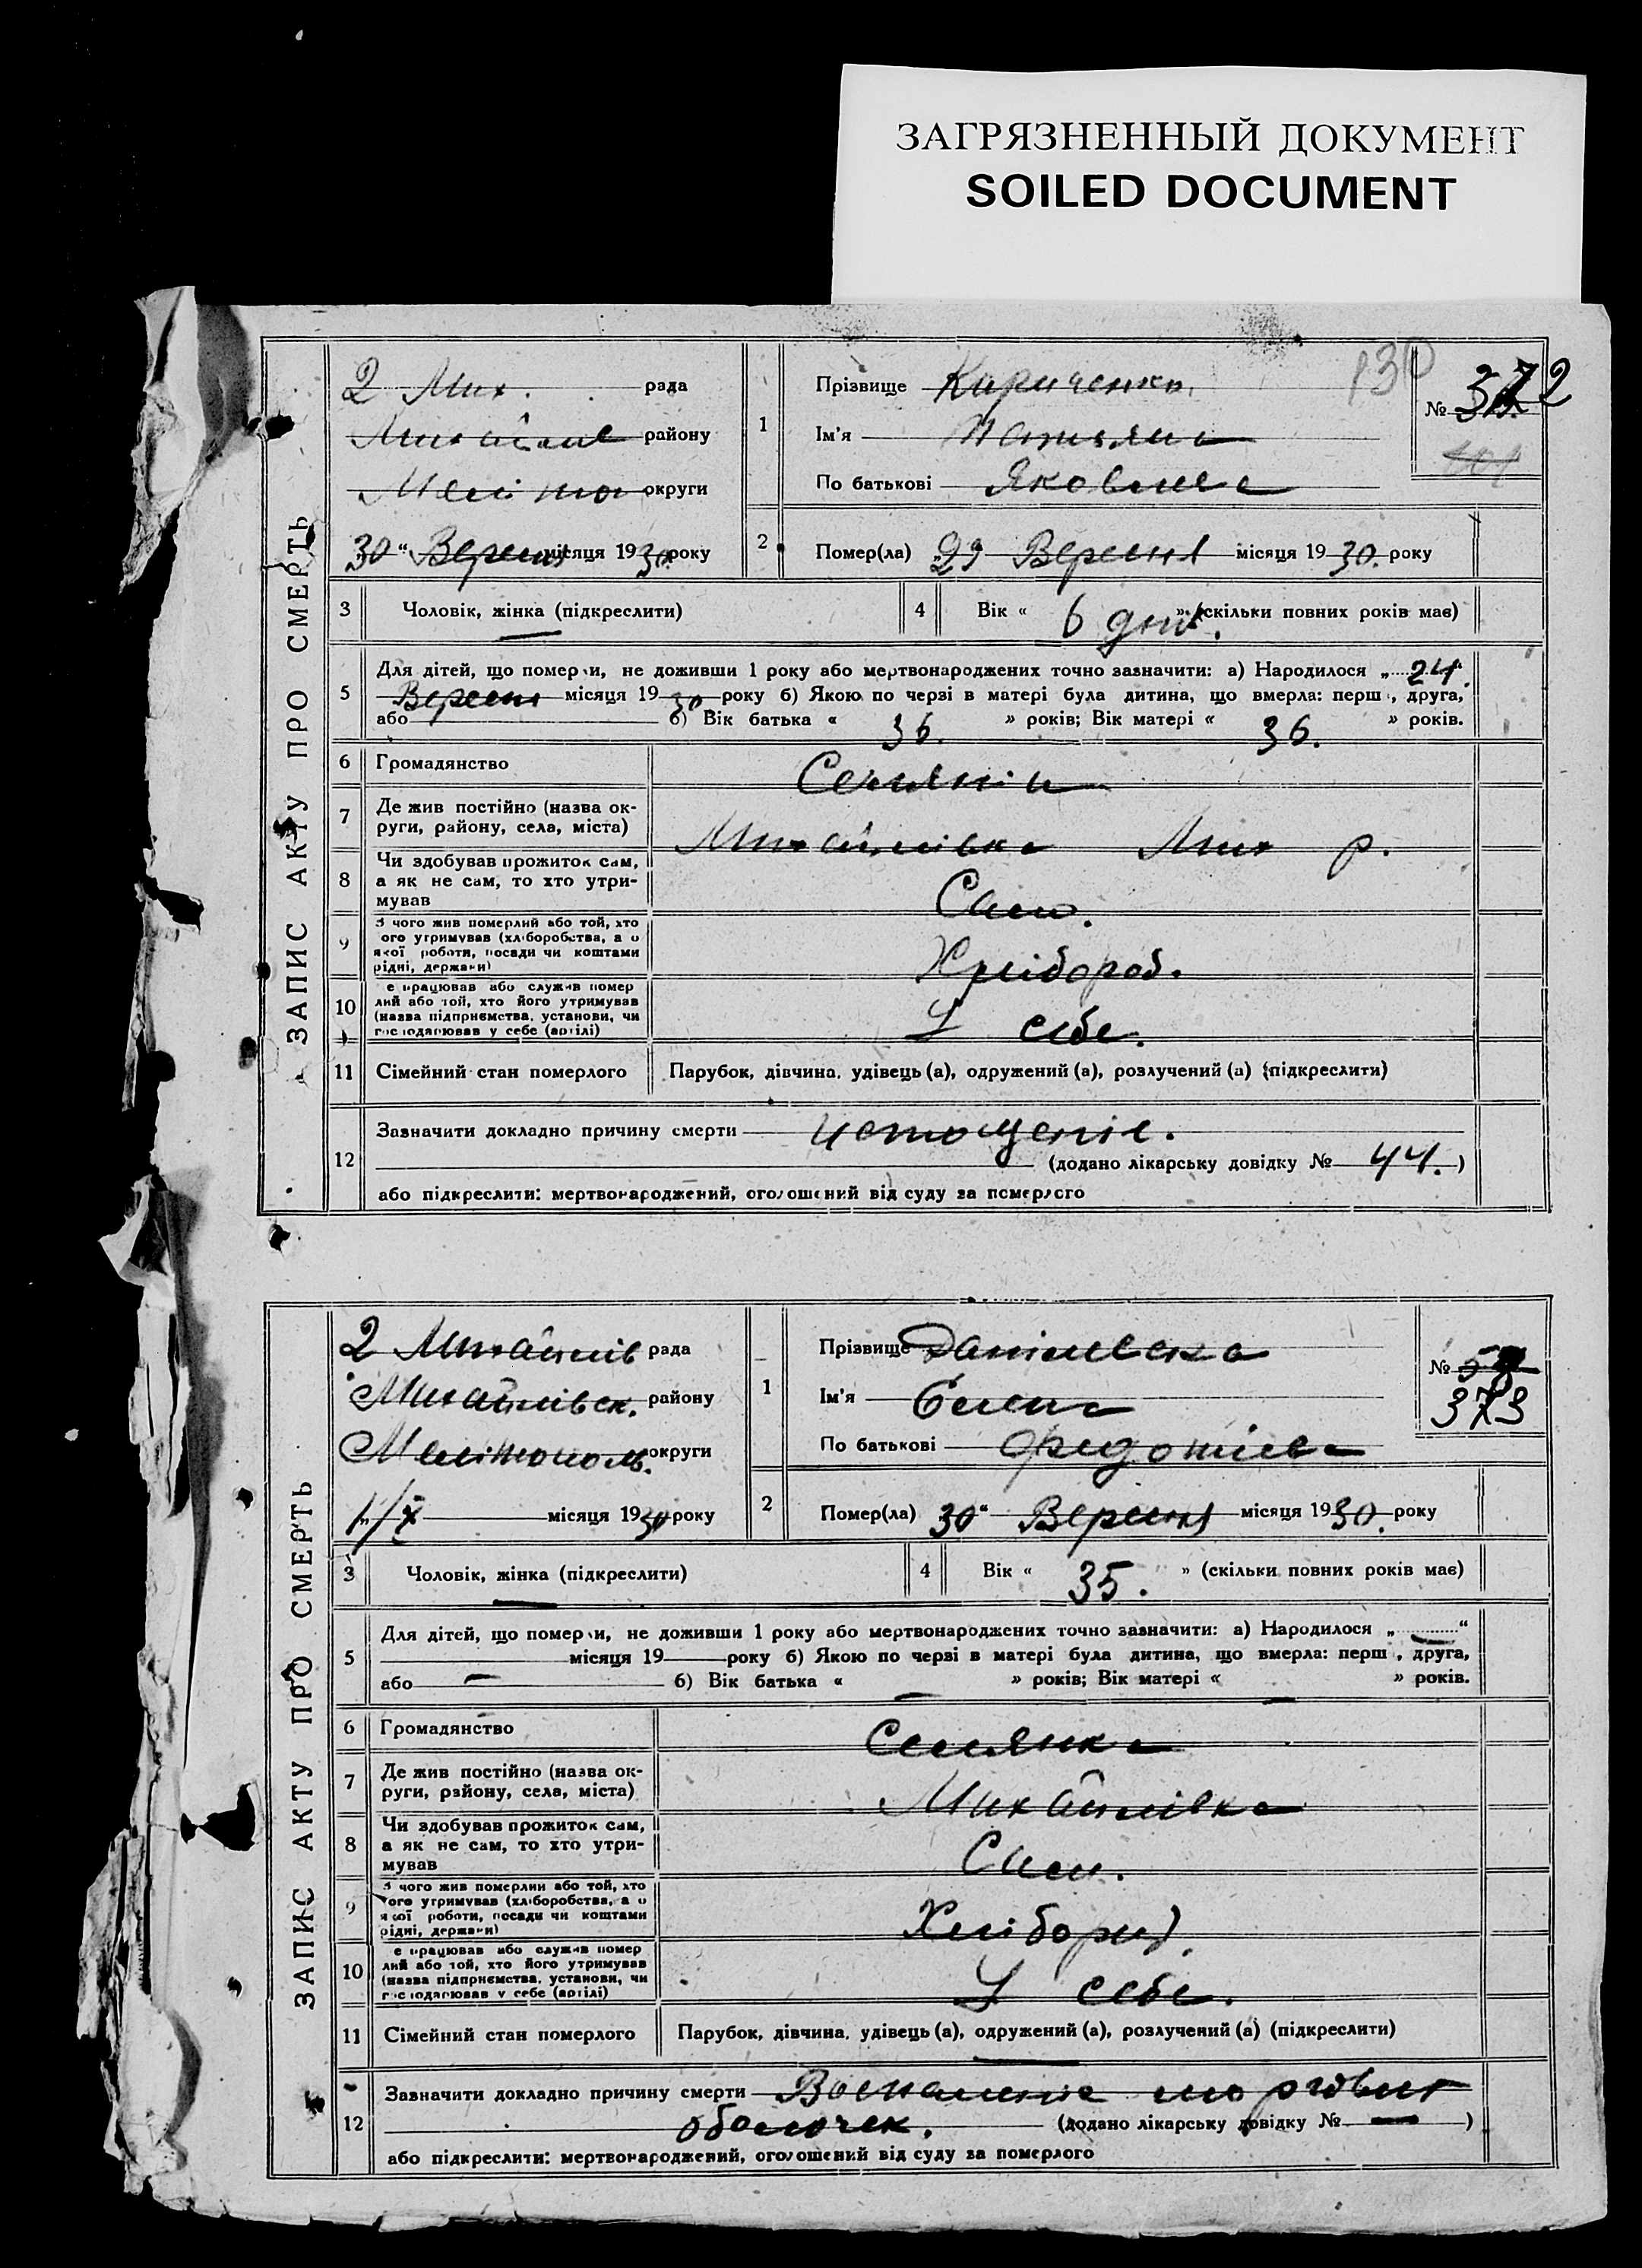 ЗАГРЯЗНЕННЫЙ ДОКУМЕНТ
SOILED DOCUMENT
ЗАПИС АКТУ ПРО СМЕРТЬ
2 Мих. рада
району
округи
30 " Вересня місяця 1930 року
1
Прізвище
Ім'я
По батькові Яковлева
130
№ 372
2
Помер(ла) 29 Вересня місяця 1930. року
3 Чоловік, жінка (підкреслити)
4 Вік « 6 днів. » (скільки повних років має)
5
Для дітей, що померли, не доживши 1 року або мертвонароджених точно зазначити: а) Народилося „ 24 "
Вересня місяця 1930 року б) Якою по черзі в матері була дитина, що вмерла: перш, друга,
або б) Вік батька « 36. » років; Вік матері « 36. » років.
6 Громадянство Селянін
7 Де жив постійно (назва округи, району, села, міста) Михайлівка Мих р.
8 Чи здобував прожиток сам,
а як не сам, то хто утримував Сам.
9 З чого жив померлий або той, хто
ого утримував (хліборобства, а о
якої роботи, посади чи коштами
рідні, держави) Хлібороб.
10 е працював або служив помер
лий або той, хто його утримував
(назва підприємства, установи, чи
господарював у себе (артілі) У себе.
11 Сімейний стан померлого Парубок, дівчина, удівець (а), одружений (а), розлучений (а) (підкреслити)
12
Зазначити докладно причину смерти истощеніе.
(додано лікарську довідку № 44. )
або підкреслити: мертвонароджений, оголошений від суду за померлого
ЗАПИС АКТУ ПРО СМЕРТЬ
2 Михайлів рада
Михайлівск. району
Мелітополь. округи
1/X місяця 1930 року
1
Прізвище Данілевска
Ім'я Елена
По батькові Федотіева
№
373
2
Помер(ла) 30 " Вересня місяця 1930. року
3 Чоловік, жінка (підкреслити)
4 Вік « 35. » (скільки повних років має)
5
Для дітей, що померли, не доживши 1 року або мертвонароджених точно зазначити: а) Народилося „ — "
місяця 19 року б) Якою по черзі в матері була дитина, що вмерла: перш, друга,
або — б) Вік батька « — » років; Вік матері « — » років.
6 Громадянство Селянка
7 Де жив постійно (назва округи, району, села, міста) Михайлівка
8 Чи здобував прожиток сам,
а як не сам, то хто утримував Сам.
9 З чого жив померлий або той, хто
ого утримував (хліборобства, а о
якої роботи, посади чи коштами
рідні, держави) Хлібороб
10 е працював або служив помер
лий або той, хто його утримував
(назва підприємства, установи, чи
господарював у себе (артілі) У себе.
11 Сімейний стан померлого Парубок, дівчина, удівець (а), одружений (а), розлучений (а) (підкреслити)
12
Зазначити докладно причину смерти Воспаленіе мозговых
оболочек. (додано лікарську довідку № — )
або підкреслити: мертвонароджений, оголошений від суду за померлого